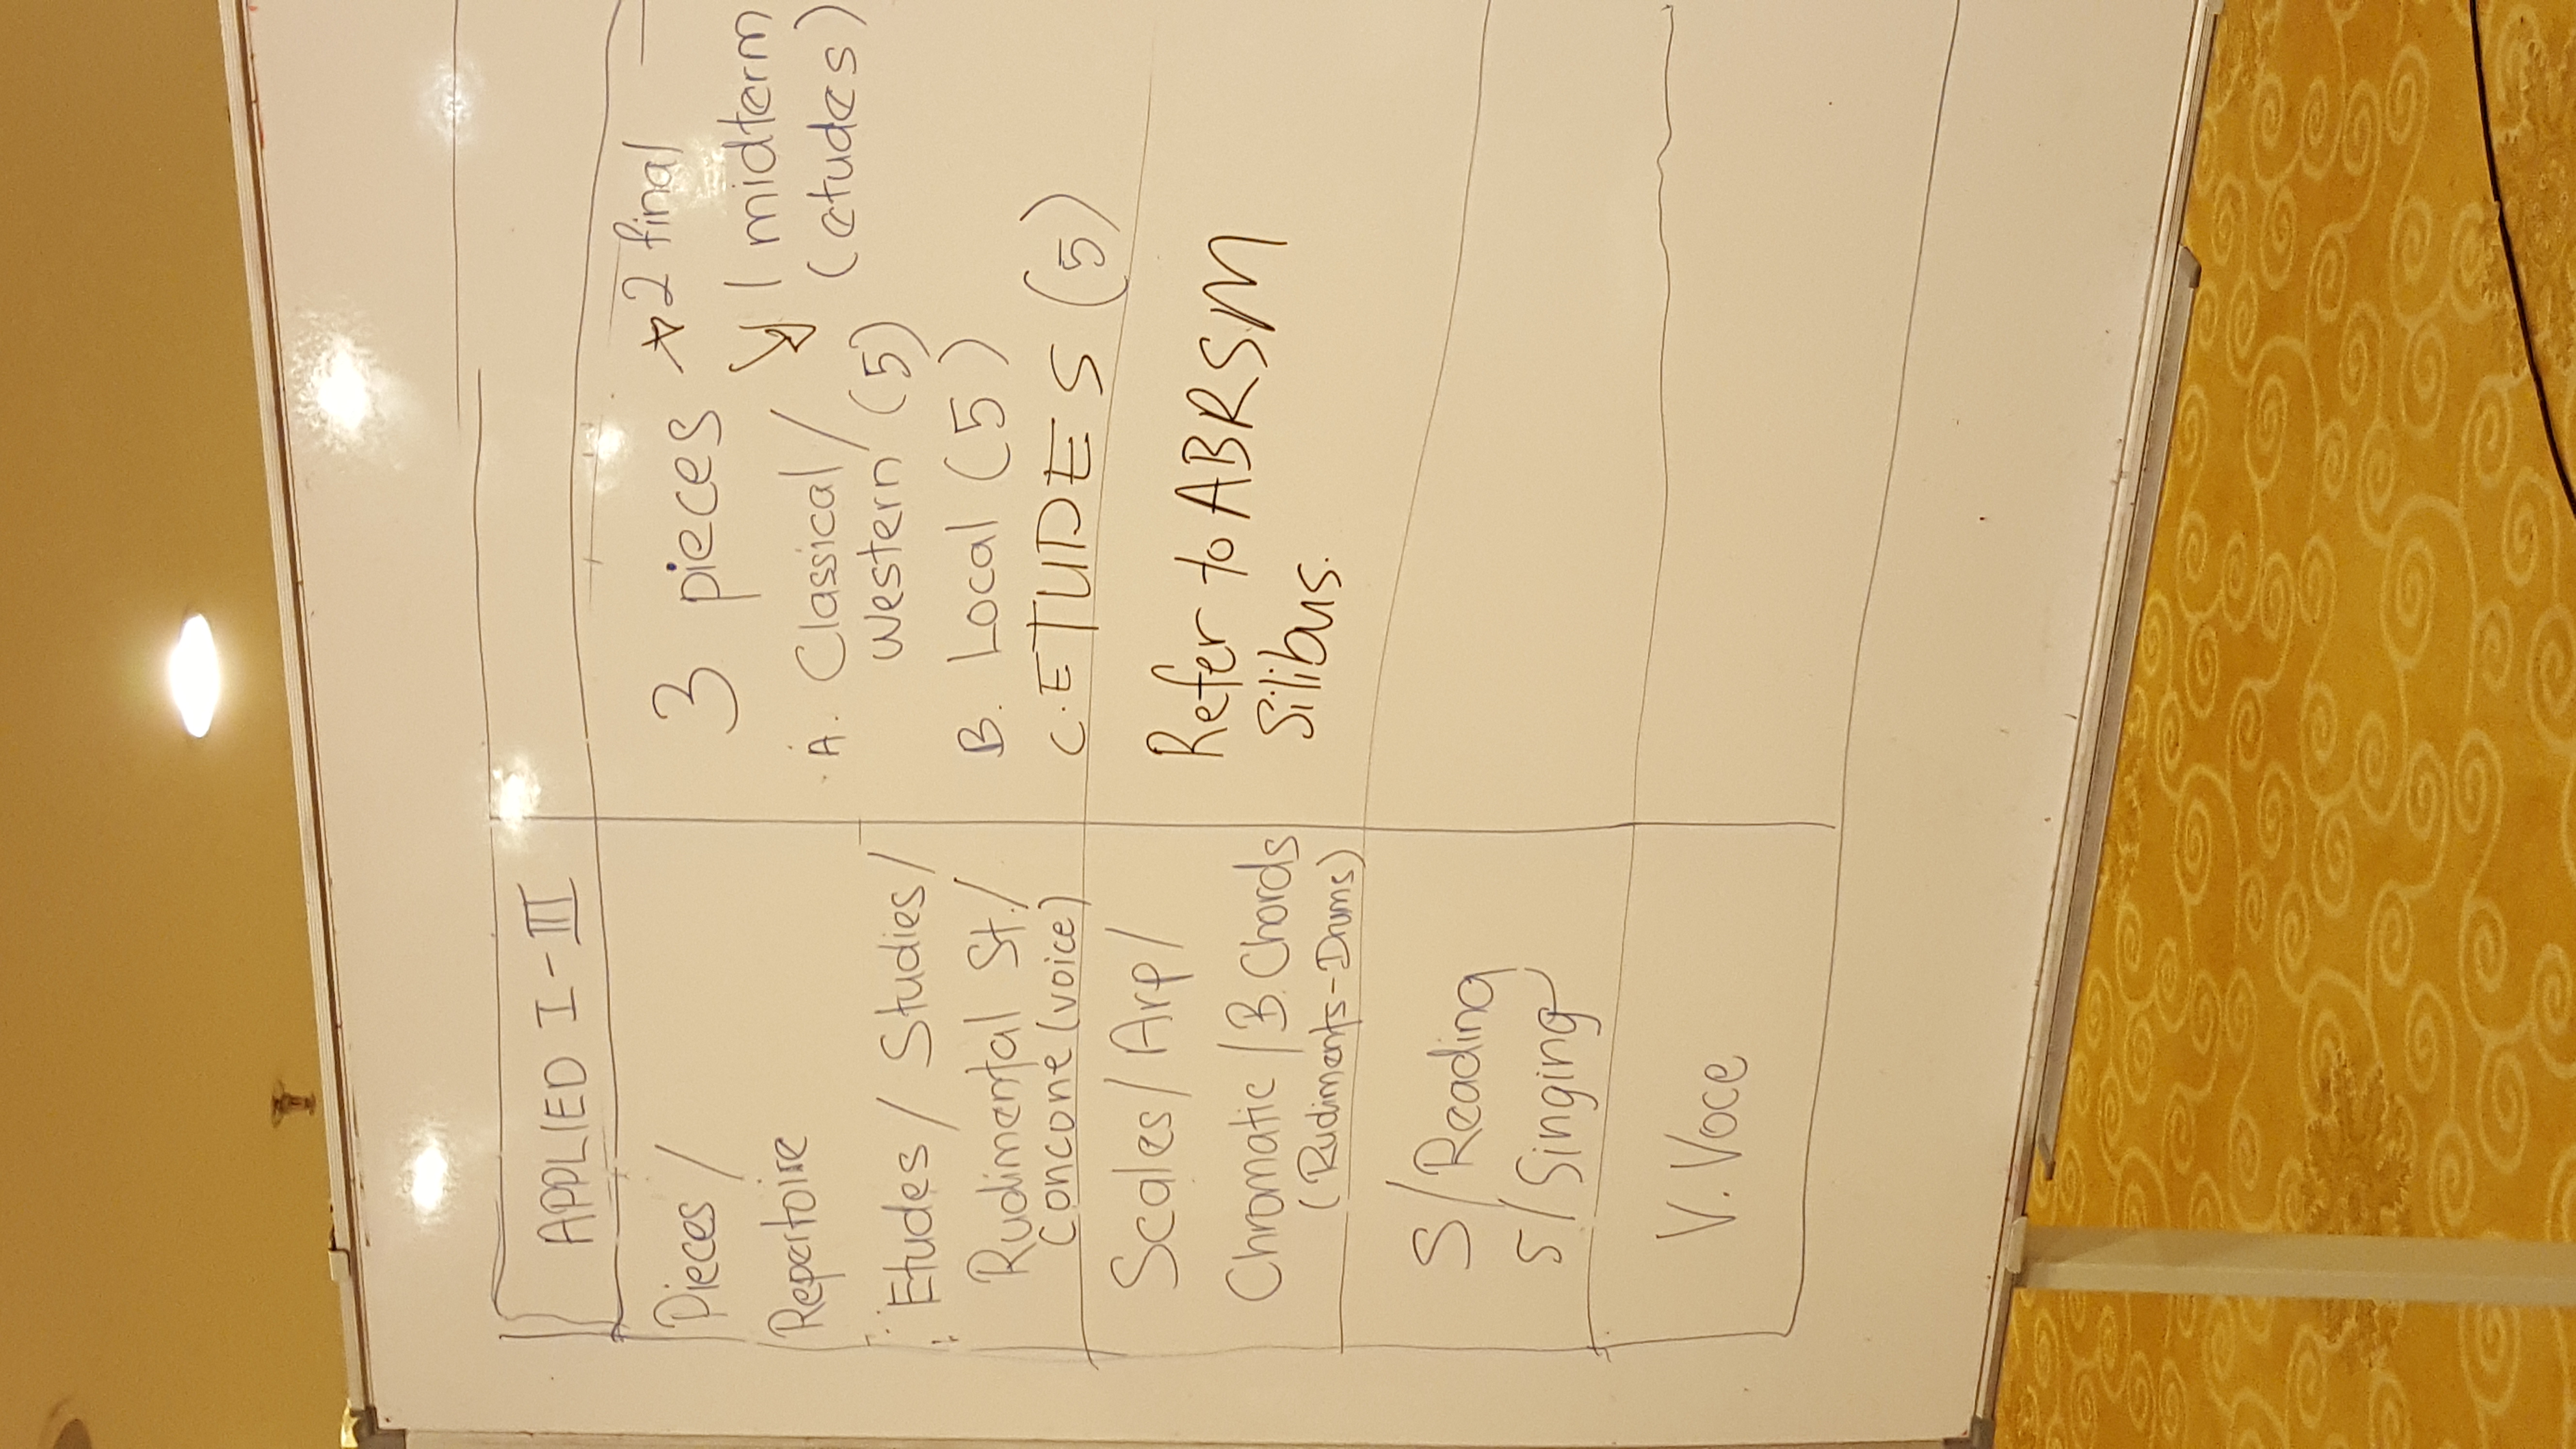 APPLIED I-III
Pieces /
Repertoire
3 pieces
2 final
1 midterm
(etudes)
A. Classical /
Western (5)
B. Local (5)
C. ETUDES (5)
Etudes / Studies /
Rudimental St. /
Concone (voice)
Scales / Arp /
Chromatic / B. Chords
(Rudiments-Drums)
Refer to ABRSM
Silibus.
S/Reading
S/Singing
V. Voce